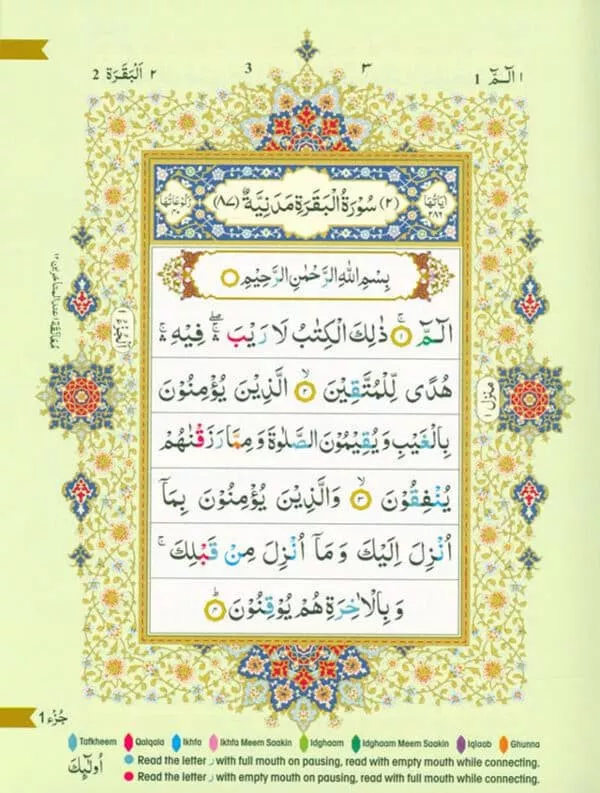 ١ الٓـمّٓ 1
3 ٣
٢ اَلْبَقَرَة 2
اٰيَاتُهَا ٢٨٦
(٢) سُوْرَةُ الْبَقَرَةِ مَدَنِيَّةٌ (٨٧)
رُكُوْعَاتُهَا ٤٠
بِسْمِ اللهِ الرَّحْمٰنِ الرَّحِيْمِ
الٓـمّٓ ۚ ١ ذٰلِكَ الْكِتٰبُ لَا رَيْبَ ۛۖ فِيْهِ ۛۚ
هُدًى لِّلْمُتَّقِيْنَ ۙ ٢ الَّذِيْنَ يُؤْمِنُوْنَ
بِالْغَيْبِ وَيُقِيْمُوْنَ الصَّلٰوةَ وَمِمَّا رَزَقْنٰهُمْ
يُنْفِقُوْنَ ۙ ٣ وَالَّذِيْنَ يُؤْمِنُوْنَ بِمَآ
اُنْزِلَ اِلَيْكَ وَمَآ اُنْزِلَ مِنْ قَبْلِكَ ۚ
وَبِالْاٰخِرَةِ هُمْ يُوْقِنُوْنَ ؕ ٤
اَلْجُزْءُ ١
مَنْزِل ١
جُزْء 1
Tafkheem Qalqala Ikhfa Ikhfa Meem Saakin Idghaam Idghaam Meem Saakin Iqlaab Ghunna
Read the letter ر with full mouth on pausing, read with empty mouth while connecting.
Read the letter ر with empty mouth on pausing, read with full mouth while connecting.
اُولٰٓئِكَ